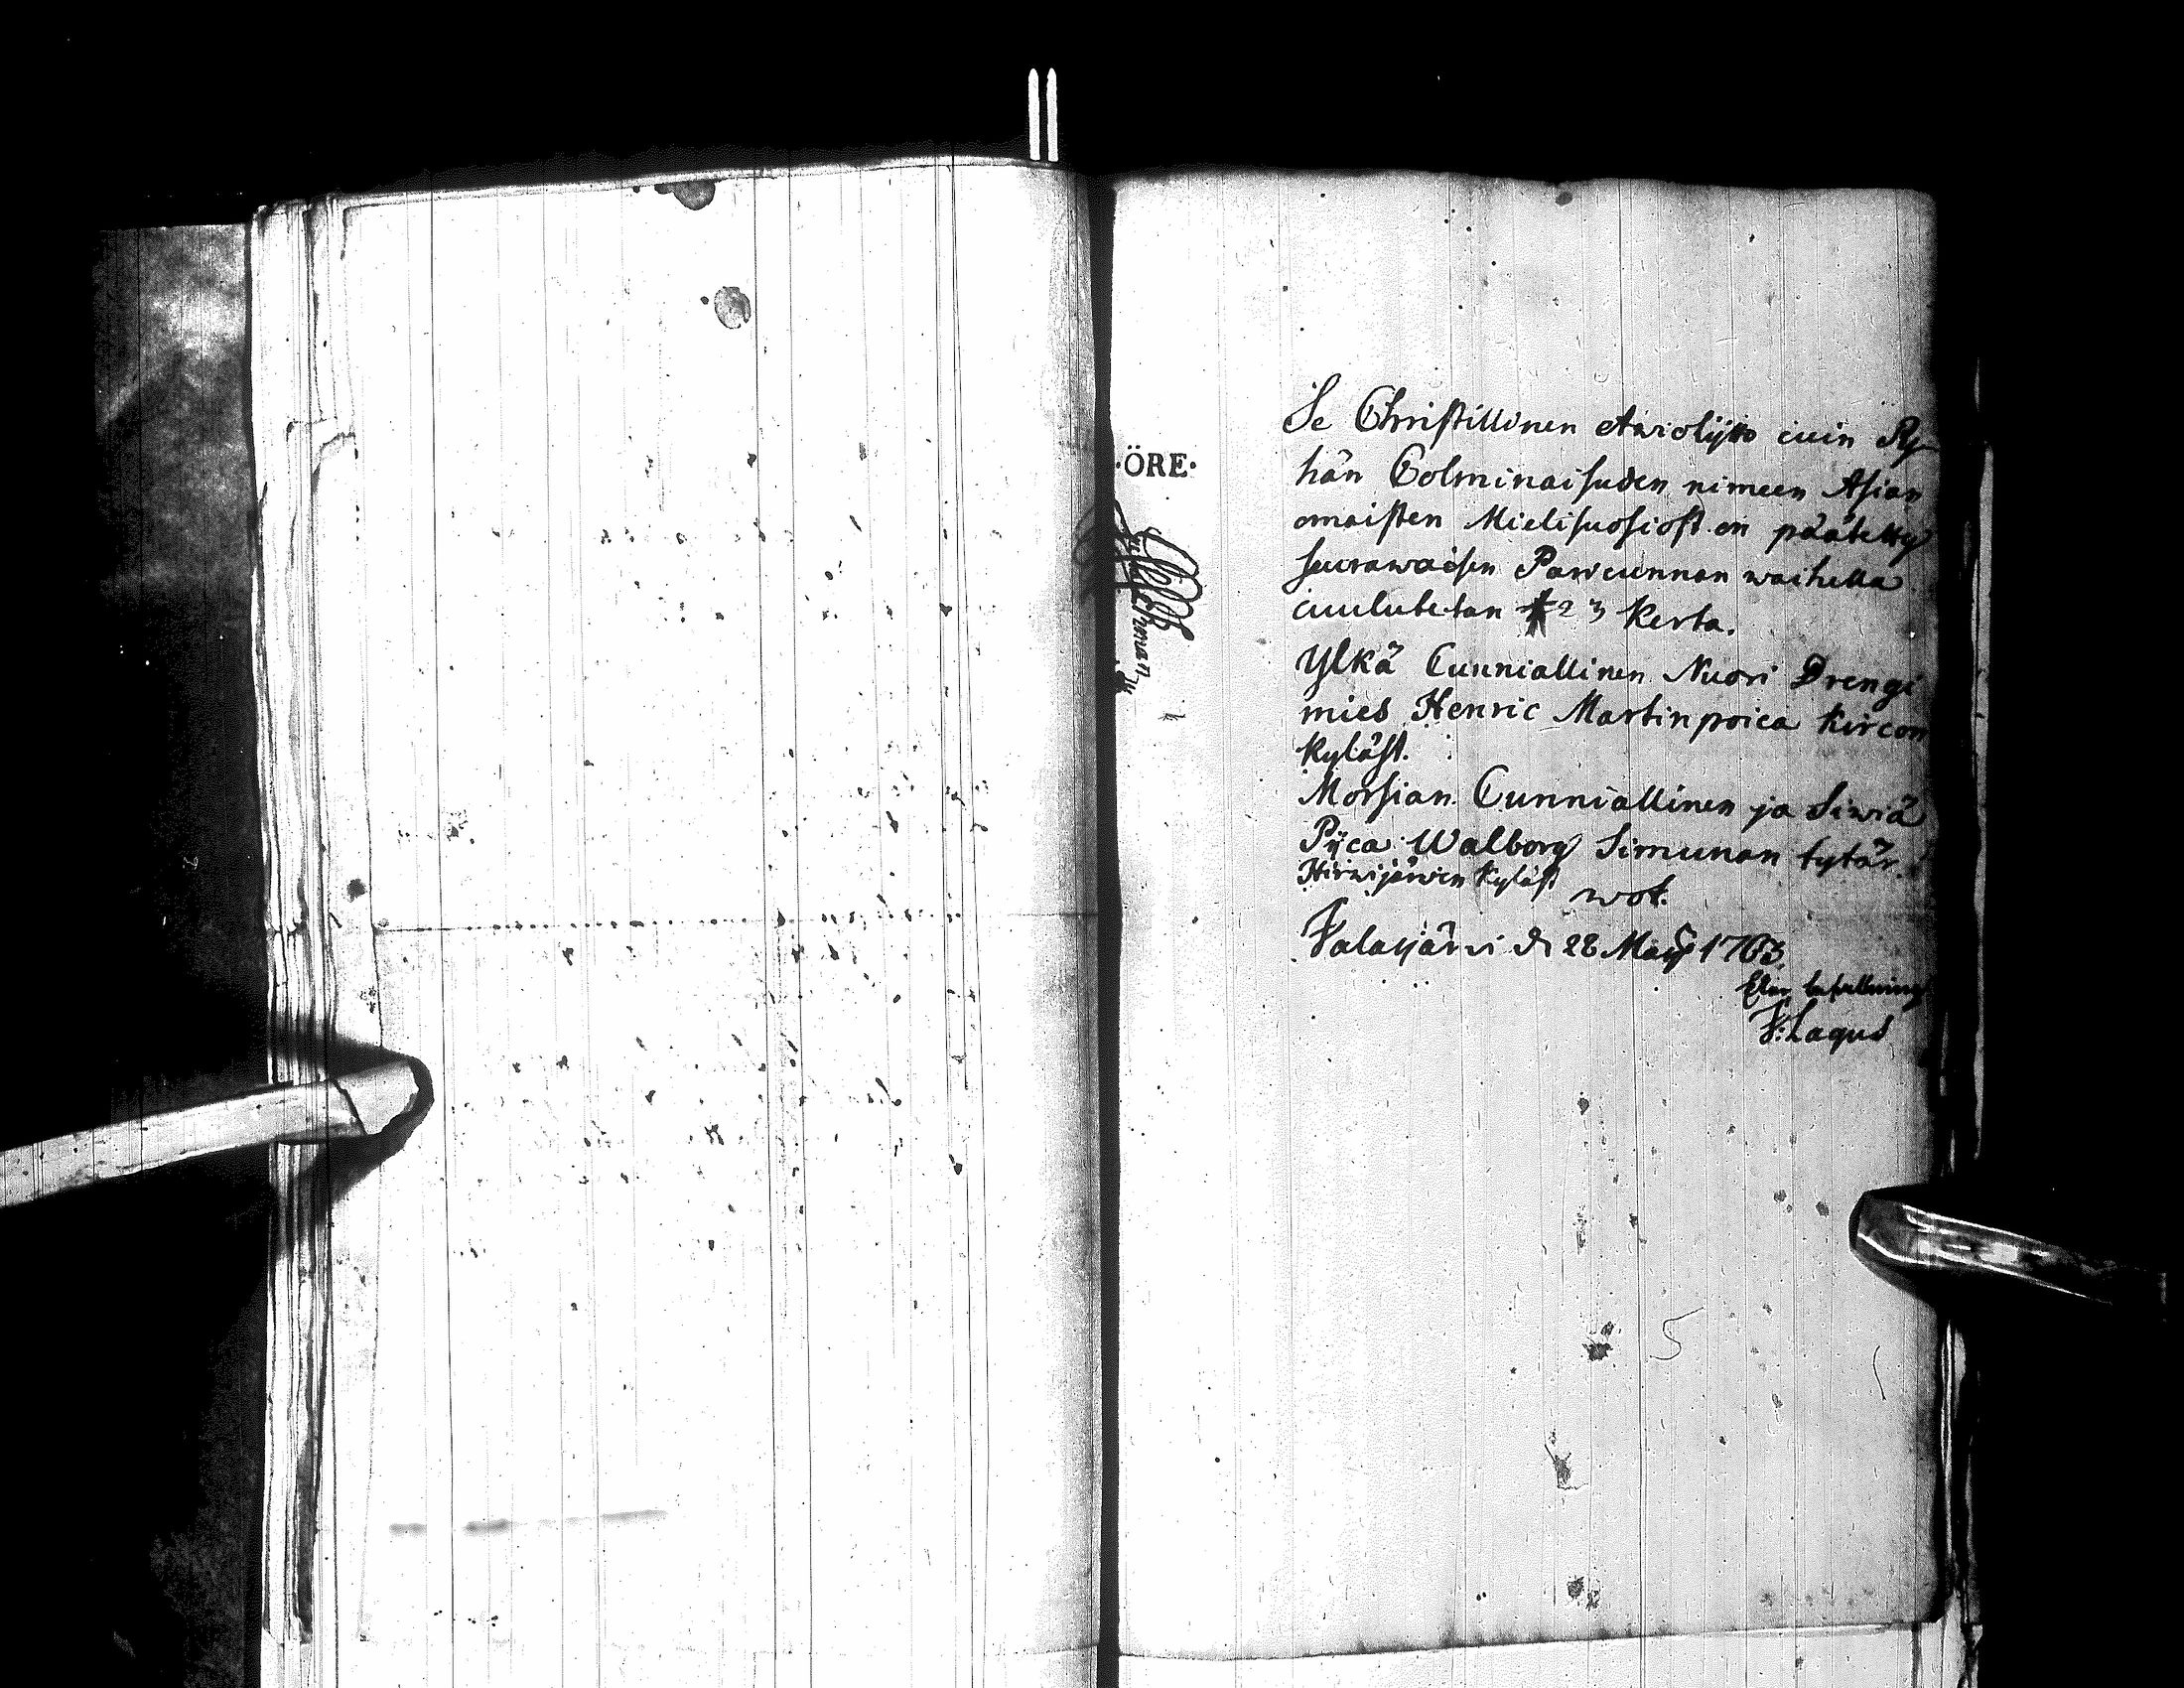 ·ÖRE·
Se Christillinen Awiolijtto cuin Py-
hän Colminaisuden nimeen Asian
omaisten Mielisuosiost on päätetty
seurawaisen Parcunnan waihella
cuulutetan 1 2 3 Kerta.
Ylkä Cunniallinen Nuori Drengi
mies Henric Martinpoica Kircon
Kyläst.
Morsian Cunniallinen ja Siwiä
Pijca Walborg Simunan tytär.
Hirwijärwen Kyläst
wot.
Jalasjärwi d 28 Maij 1763.
J: Lagus